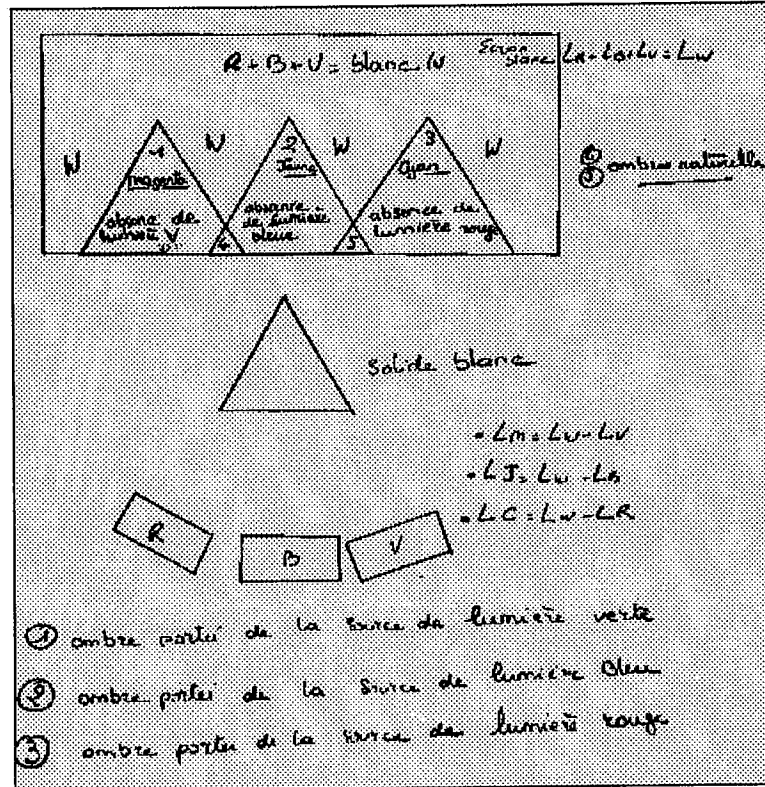 R + B + V = blanc W
Ecran blanc LR + LB + LV = LW
W 1 W 2 W 3 W
magenta
absence de lumière V
Jaune
absence de lumière bleue
Cyan
absence de lumière rouge
4 5
④ ⑤ ombres naturelles
Solide blanc
• LM = LW - LV
• LJ = LW - LB
• LC = LW - LR
R B V
① ombre portée de la source de lumière verte
② ombre portée de la source de lumière Bleu
③ ombre portée de la source de lumière rouge